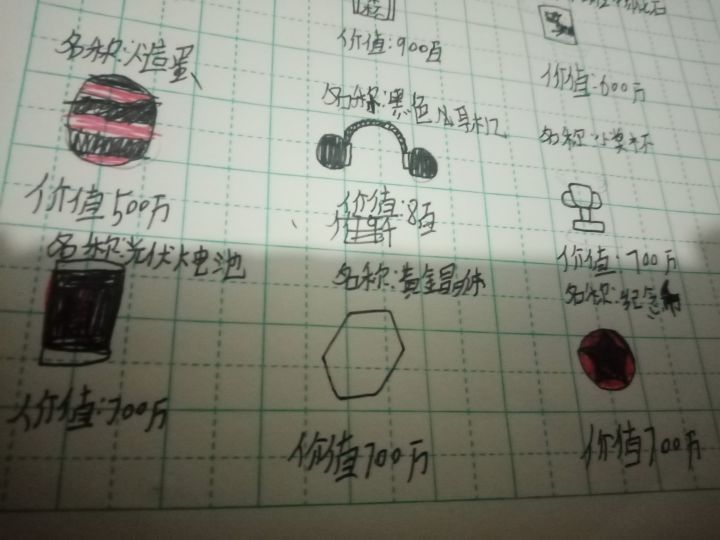 价值:900百
价值:600万
名称:人造蛋
名称:黑色小耳机
名称:小奖杯
价值:500万
价值:8百
价值:700万
名称:光伏大电池
名称:黄金晶体
名称:纪念
价值:700万
价值700万
价值700万